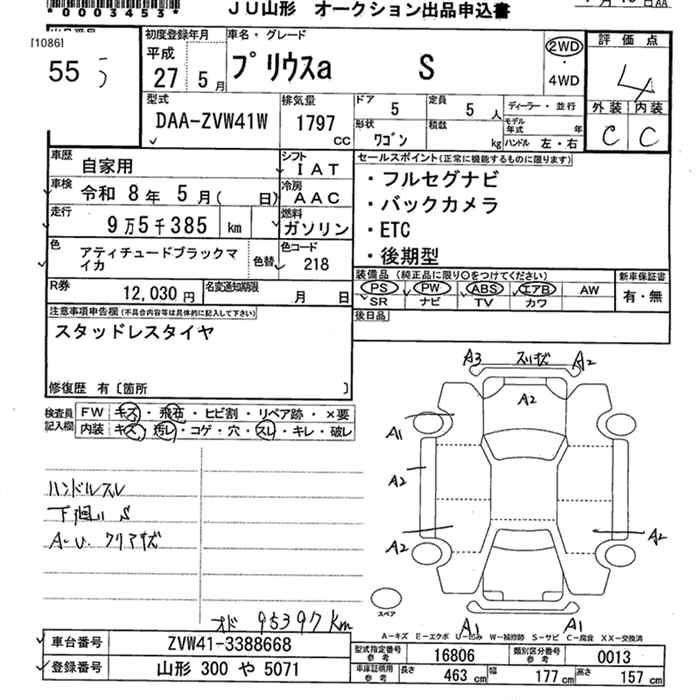 *0003453*
JU山形 オークション出品申込書
[1086]
55
初度登録年月
平成
27 5月
車名・グレード
プリウスa S
2WD
・
4WD
評価点
4
外装 内装
C C
型式
DAA-ZVW41W
排気量
1797
cc
ドア 5
定員 5 人
ディーラー・並行
形状 ワゴン
積数 kg
モデル年式 年
ハンドル 左・右
車歴 自家用
シフト IAT
車検 令和 8年 5月( 日)
冷房 AAC
走行 9万5千385 km
燃料 ガソリン
色 アティチュードブラックマイカ
色替
色コード 218
R券 12,030円
名変通知期限 月 日
セールスポイント(正常に機能するものに限ります)
・フルセグナビ
・バックカメラ
・ETC
・後期型
装備品 (純正品に限り○をつけてください)
新車保証書
PS PW ABS エアB AW
SR ナビ TV カワ
有・無
後日品
注意事項申告欄(不具合内容等は具体的に記入して下さい)
スタッドレスタイヤ
修復歴 有〔箇所 〕
検査員記入欄
FW キズ・飛石・ヒビ割・リペア跡・×要
内装 キズ・汚レ・コゲ・穴・スレ・キレ・破レ
ハンドルスレ
下廻り S
A-U. クリアキズ
オド 95397km
A3 スリキズ A2
A2
A1
A2
A2
A2
A1 A1
スペア
A-キズ E-エクボ U-凹み W-補修跡 S-サビ C-腐食 XX-交換済
車台番号 ZVW41-3388668
登録番号 山形 300 や 5071
型式指定番号 参考 16806
類別区分番号 参考 0013
車庫証明用 参考 長さ 463 cm 幅 177 cm 高さ 157 cm